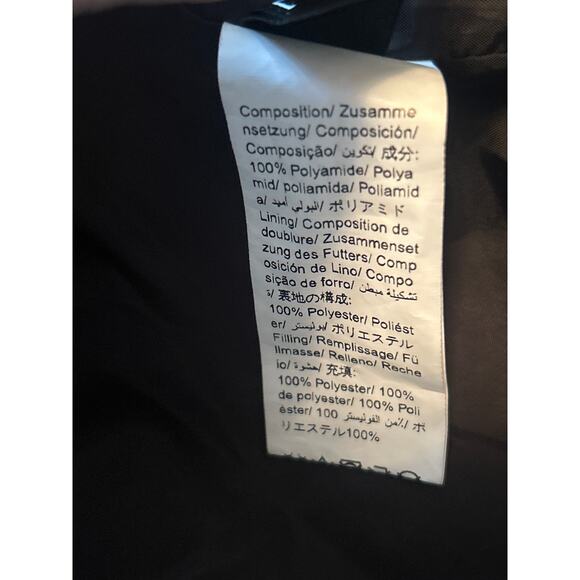 Composition/ Zusamme
nsetzung/ Composición/
Composição/ تكوين/ 成分:
100% Polyamide/ Polya
mid/ poliamida/ Poliamid
a/ البولي أميد/ ポリアミド
Lining/ Composition de
doublure/ Zusammenset
zung des Futters/ Comp
osición de Lino/ Compo
sição de forro/ تشكيلة مبطن
ة/ 裏地の構成:
100% Polyester/ Poliést
er/ بوليستر/ ポリエステル
Filling/ Remplissage/ Fü
llmasse/ Relleno/ Reche
io/ حشوة/ 充填:
100% Polyester/ 100%
de polyester/ 100% Poli
éster/ 100 ٪من الفوليستر/ ポ
リエステル100%